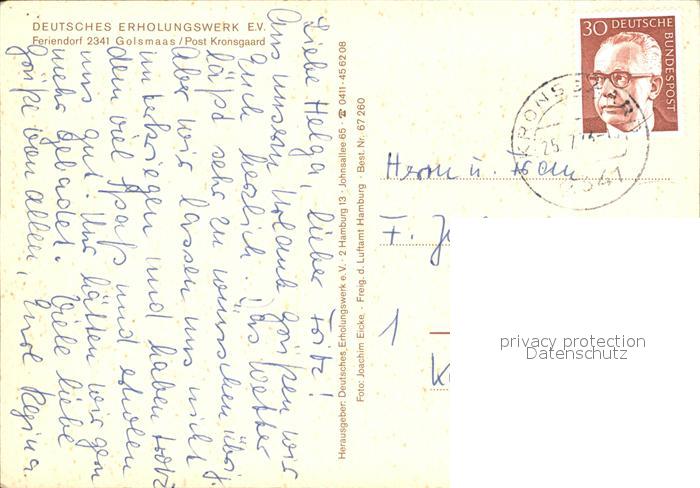 DEUTSCHES ERHOLUNGSWERK E.V.
Feriendorf 2341 Golsmaas / Post Kronsgaard
Liebe Helga, lieber Fritz!
Aus unserm Urlaub grüßen wir
Euch herzlich. Das Wetter
läßt sehr zu wünschen übrig.
Aber wir lassen uns nicht
unterkriegen und haben trotz
dem viel Spaß und erholen
uns gut. Wir hätten wir gern
mehr gebadet. Viele liebe
Grüße von allen, Eure Regina.
Herausgeber: Deutsches Erholungswerk e.V. · 2 Hamburg 13 · Johnsallee 65 · ☎ 0411-45 62 08
Foto: Joachim Eicke · Freig. d. Luftamt Hamburg · Best.Nr. 67 260
30 DEUTSCHE
BUNDESPOST
25.7.73
2341
Herrn u. Frau
F.
1
privacy protection
Datenschutz